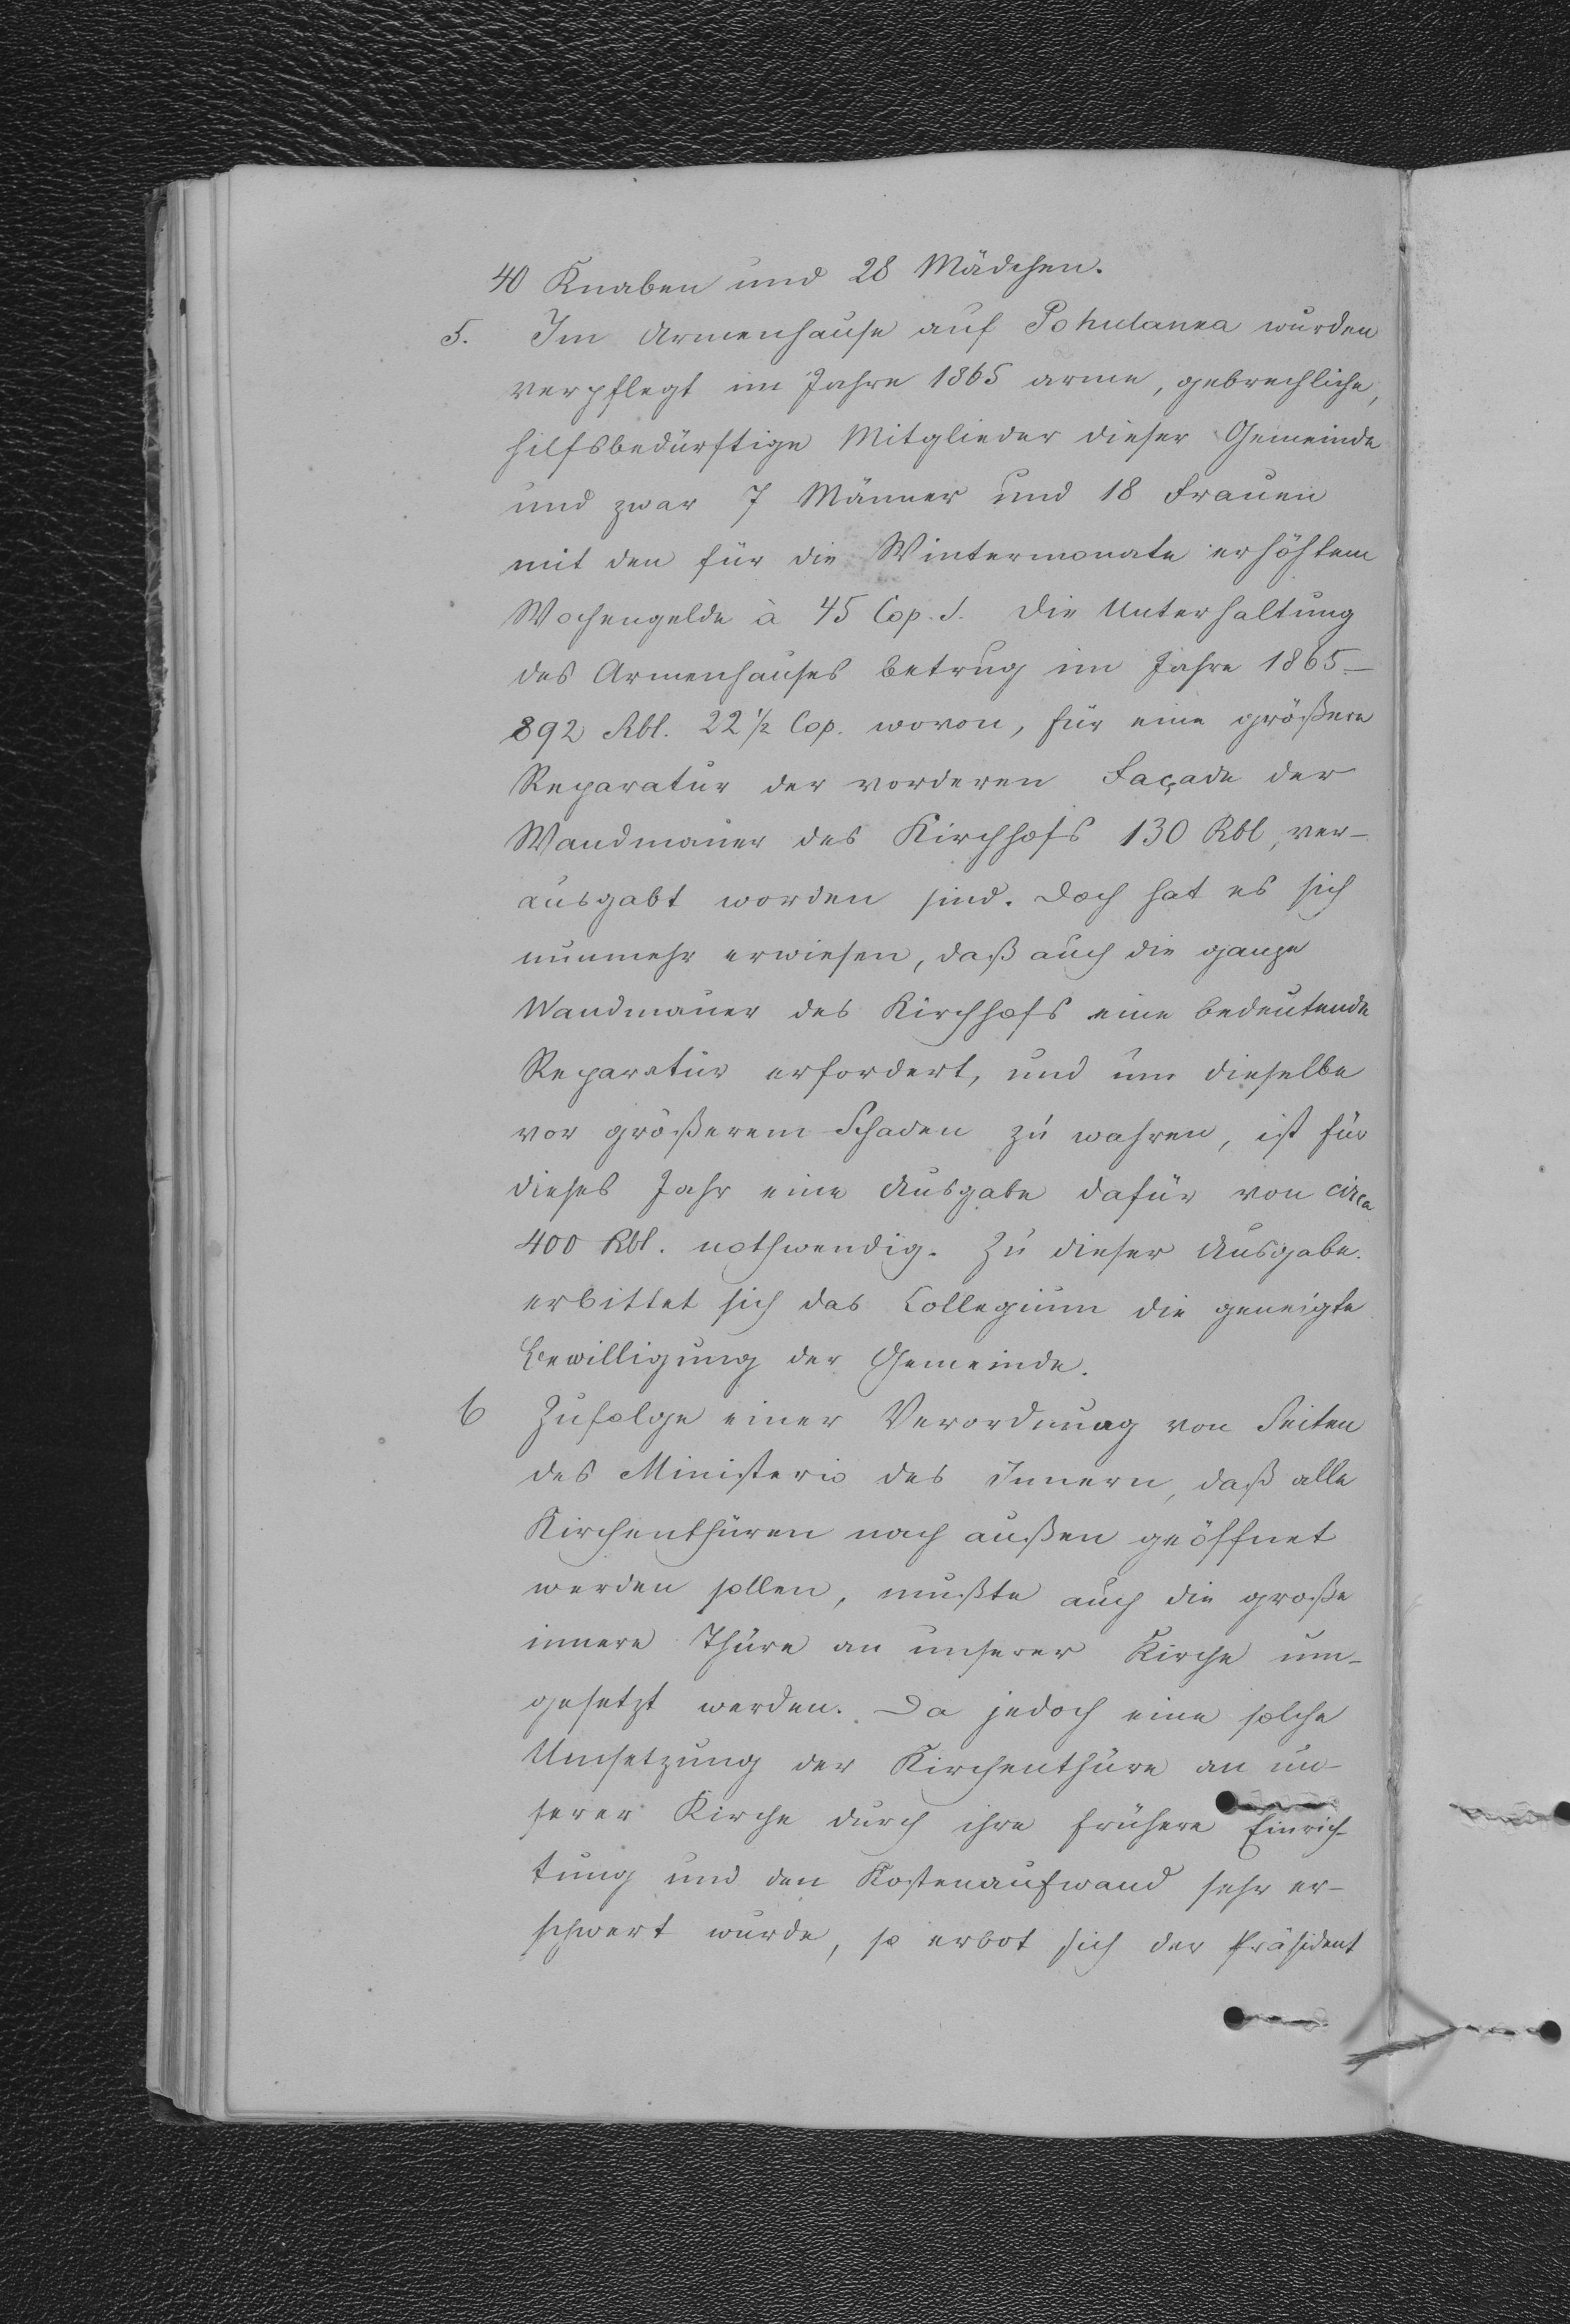 40 Knaben und 28 Mädchen.
5. Im Armenhause auf Pohulanka wurden
verpflegt im Jahre 1865 arme, gebrechliche,
hilfsbedürftige Mitglieder dieser Gemeinde
und zwar 7 Männer und 18 Frauen
mit den für die Wintermonate erhöhtem
Wochengelde à 45 Cop. S. Die Unterhaltung
des Armenhauses betrug im Jahre 1865 –
892 Rbl. 22 1/2 Cop. wovon, für eine größere
Reparatur der vorderen Façade der
Wandmauer des Kirchhofs 130 Rbl, ver-
ausgabt worden sind. Doch hat es sich
nunmehr erwiesen, daß auch die ganze
Wandmauer des Kirchhofs eine bedeutende
Reparatur erfordert, und um dieselbe
vor größerem Schaden zu wahren, ist für
dieses Jahr eine Ausgabe dafür von circa
400 Rbl. nothwendig. Zu dieser Ausgabe.
erbittet sich das Collegium die geneigte
Bewilligung der Gemeinde.
6 Zufolge einer Verordnung von Seiten
des Ministerio des Innern, daß alle
Kirchenthüren nach außen geöffnet
werden sollen, mußte auch die große
innere Thüre an unserer Kirche um-
gesetzt werden. Da jedoch eine solche
Umsetzung der Kirchenthüre an un-
serer Kirche durch ihre frühere Einrich-
tung und den Kostenaufwand sehr er-
schwert wurde, so erbot sich der Präsident